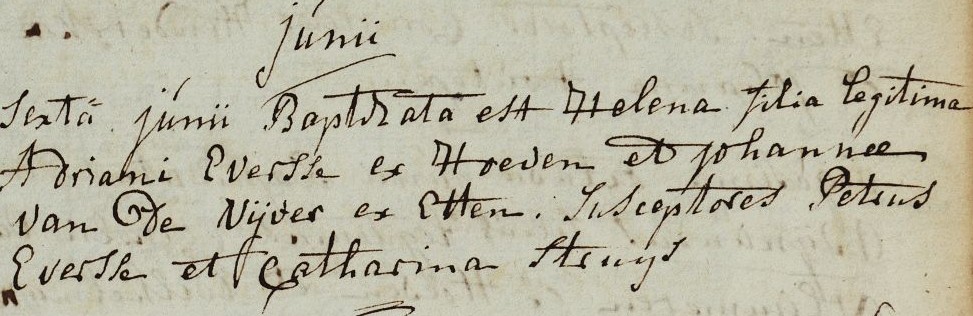 junii
Sexta junii Baptizata est Helena filia legitima
Adriani Eversse ex Hoeven et johannae
van De Vijver ex Etten. Susceptores Petrus
Eversse et Catharina Struijs